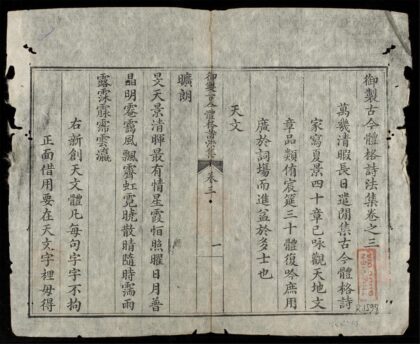 御製古今體格詩法集卷之三
萬幾清暇長日遣閒集古今體格詩
家寫夏景四十章已咏觀天地文
章品類侑宸筵三十體復吟庶用
廣於詞場而進益於多士也
天文
御製古今體格詩法集 卷三 一
曠朗
旻天景清暉最有情星霞恒照曜日月普
晶明靄風飄霽虹霓曉散晴隨時霈雨
露霂霡雲
右新創天文體凡每句字字不拘
正面借用要在天文字裡毋得
R.1598